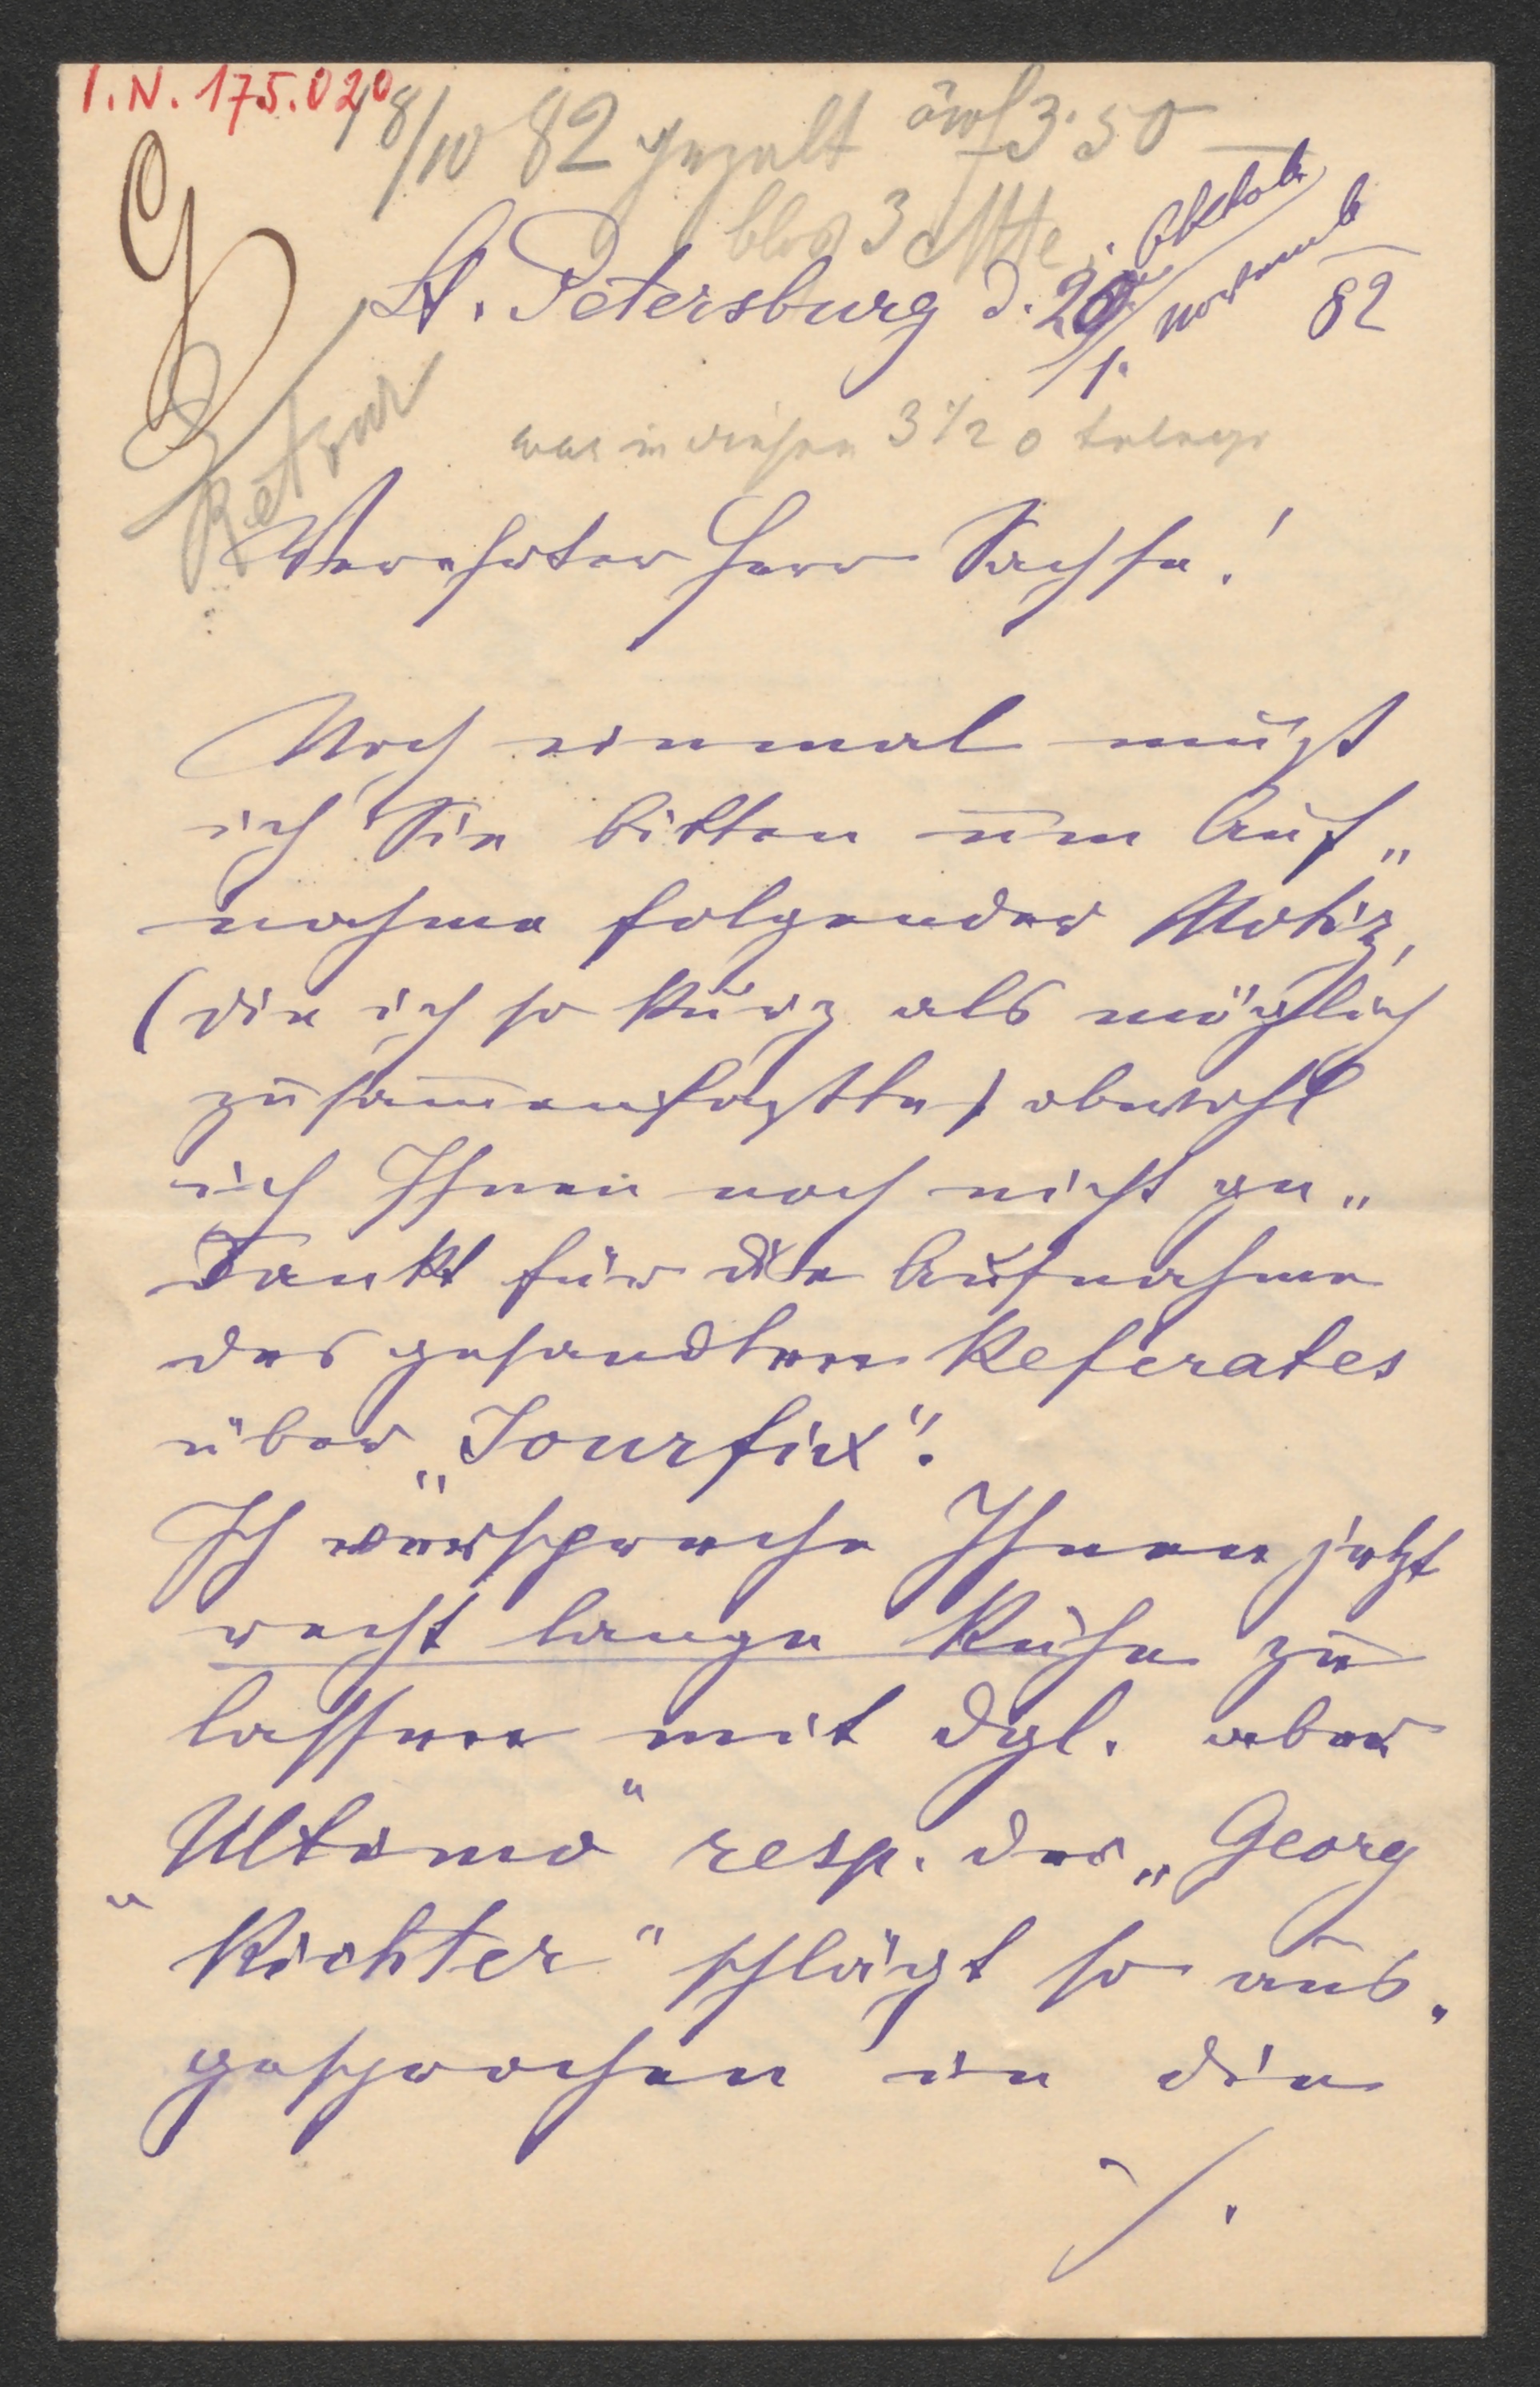 I.N. 175.020
18/10 82 gezalt öwf 3.50
blos 3 Mte
St. Petersburg d. 20. Oktob. / 1. Novemb 82
Retour
was in diesen 3 1/2 0
Verehrter Herr Sachse!
Noch einmal mußt
ich Sie bitten um Auf„
nahme folgender Notiz,
(die ich so kurz als möglich
zusam̄enfaßte) obwohl
ich Ihnen noch nicht ge„
dankt für die Aufnahme
des gesandten Referates
über „Jourfix".
Ich verspreche Ihnen jetzt
recht lange Ruhe zu
lassen mit dgl. aber
„Ultimo" resp. der „Georg
„Richter" schlägt so aus„
gesprochen in die
./.